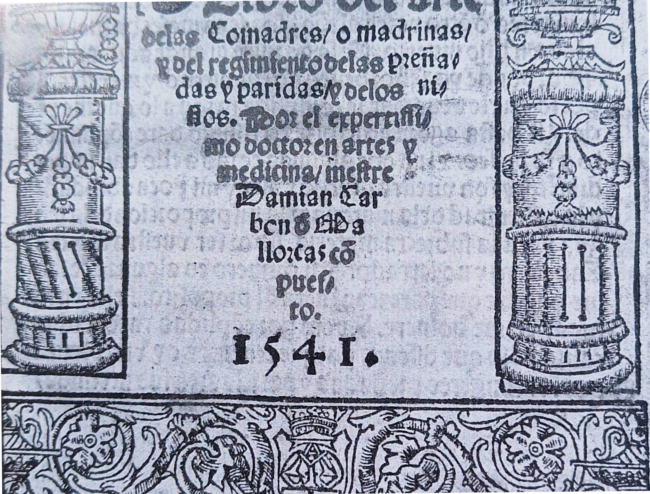 Libro del arte
delas Comadres/ o madrinas/
y del regimiento delas preña/
das y paridas/ y delos ni/
ños. Por el expertissi/
mo doctor en artes y
medicina/ mestre
Damian Car
bon d̄ Ma
llorca; cō
pues/
to.
1541.